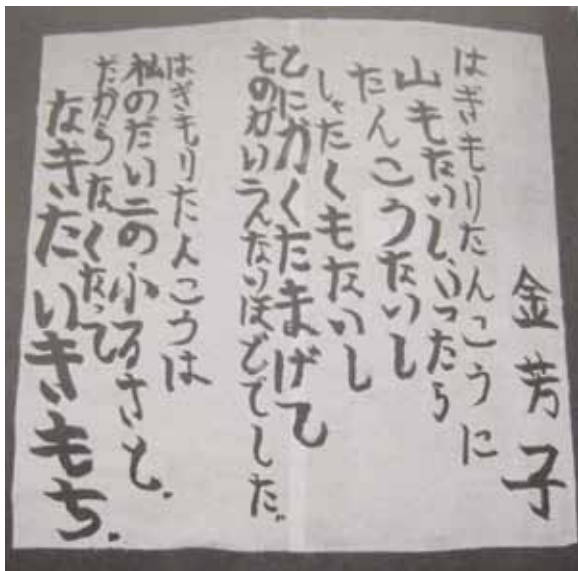 金芳子
はぎもりたんこうに
山もないし、いったら
たんこうないし
しゃたくもないし
とにがくたまげて
ものがいえんないほどでした。
はぎもりたんこうは
私のだい二のふるさと。
だからなくなって
なきたいきもち。